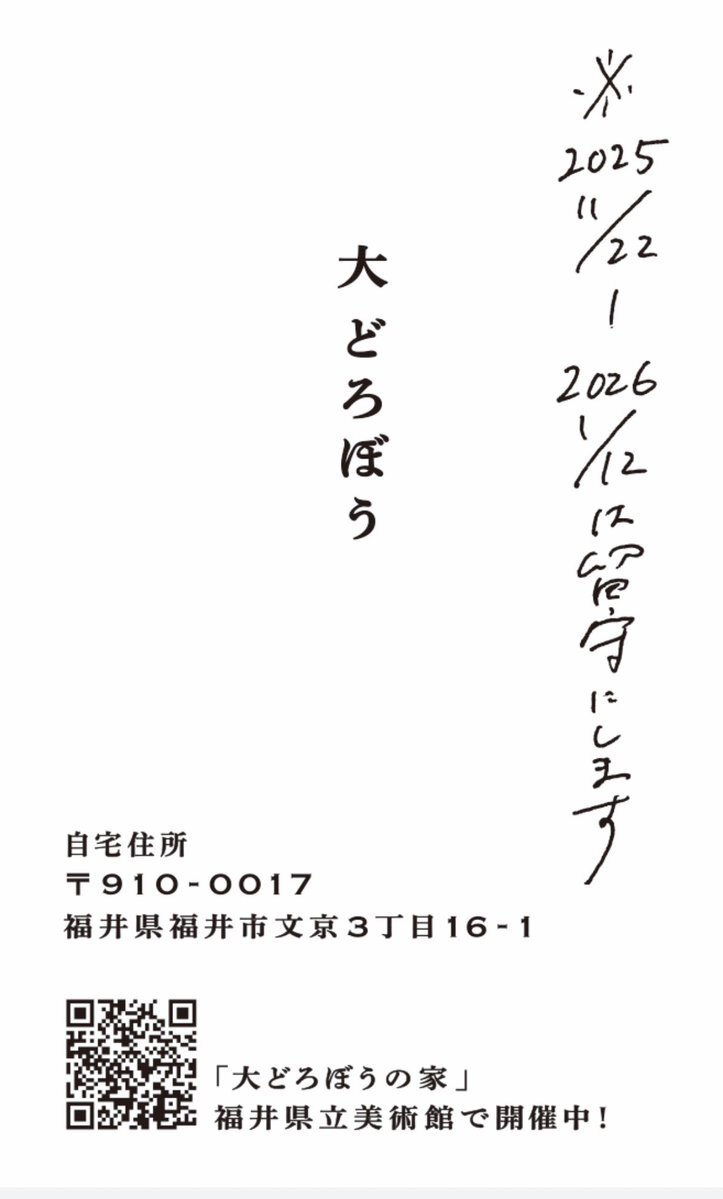 ※2025 11/22-2026 1/12は留守にします
大どろぼう
自宅住所
〒910-0017
福井県福井市文京3丁目16-1
「大どろぼうの家」
福井県立美術館で開催中!